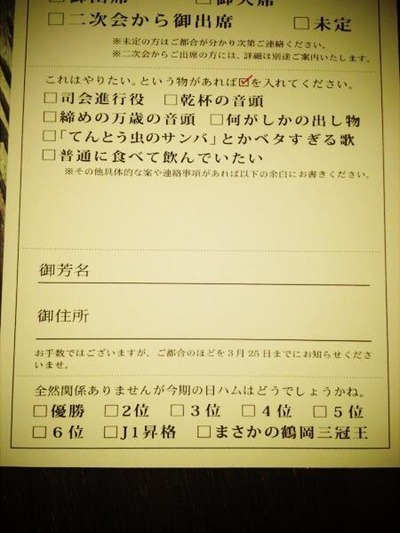 □御出席 □御欠席
□二次会から御出席 □未定
※未定の方はご都合が分かり次第ご連絡ください。
※二次会からご出席の方には、詳細は別途ご案内いたします。
これはやりたい。という物があれば☑を入れてください。
□司会進行役 □乾杯の音頭
□締めの万歳の音頭 □何がしかの出し物
□「てんとう虫のサンバ」とかベタすぎる歌
□普通に食べて飲んでいたい
※その他具体的な案や連絡事項があれば以下の余白にお書きください。
御芳名
御住所
お手数ではございますが、ご都合のほどを3月25日までにお知らせくださ
いませ。
全然関係ありませんが今期の日ハムはどうでしょうかね。
□優勝 □2位 □3位 □4位 □5位
□6位 □J1昇格 □まさかの鶴岡三冠王